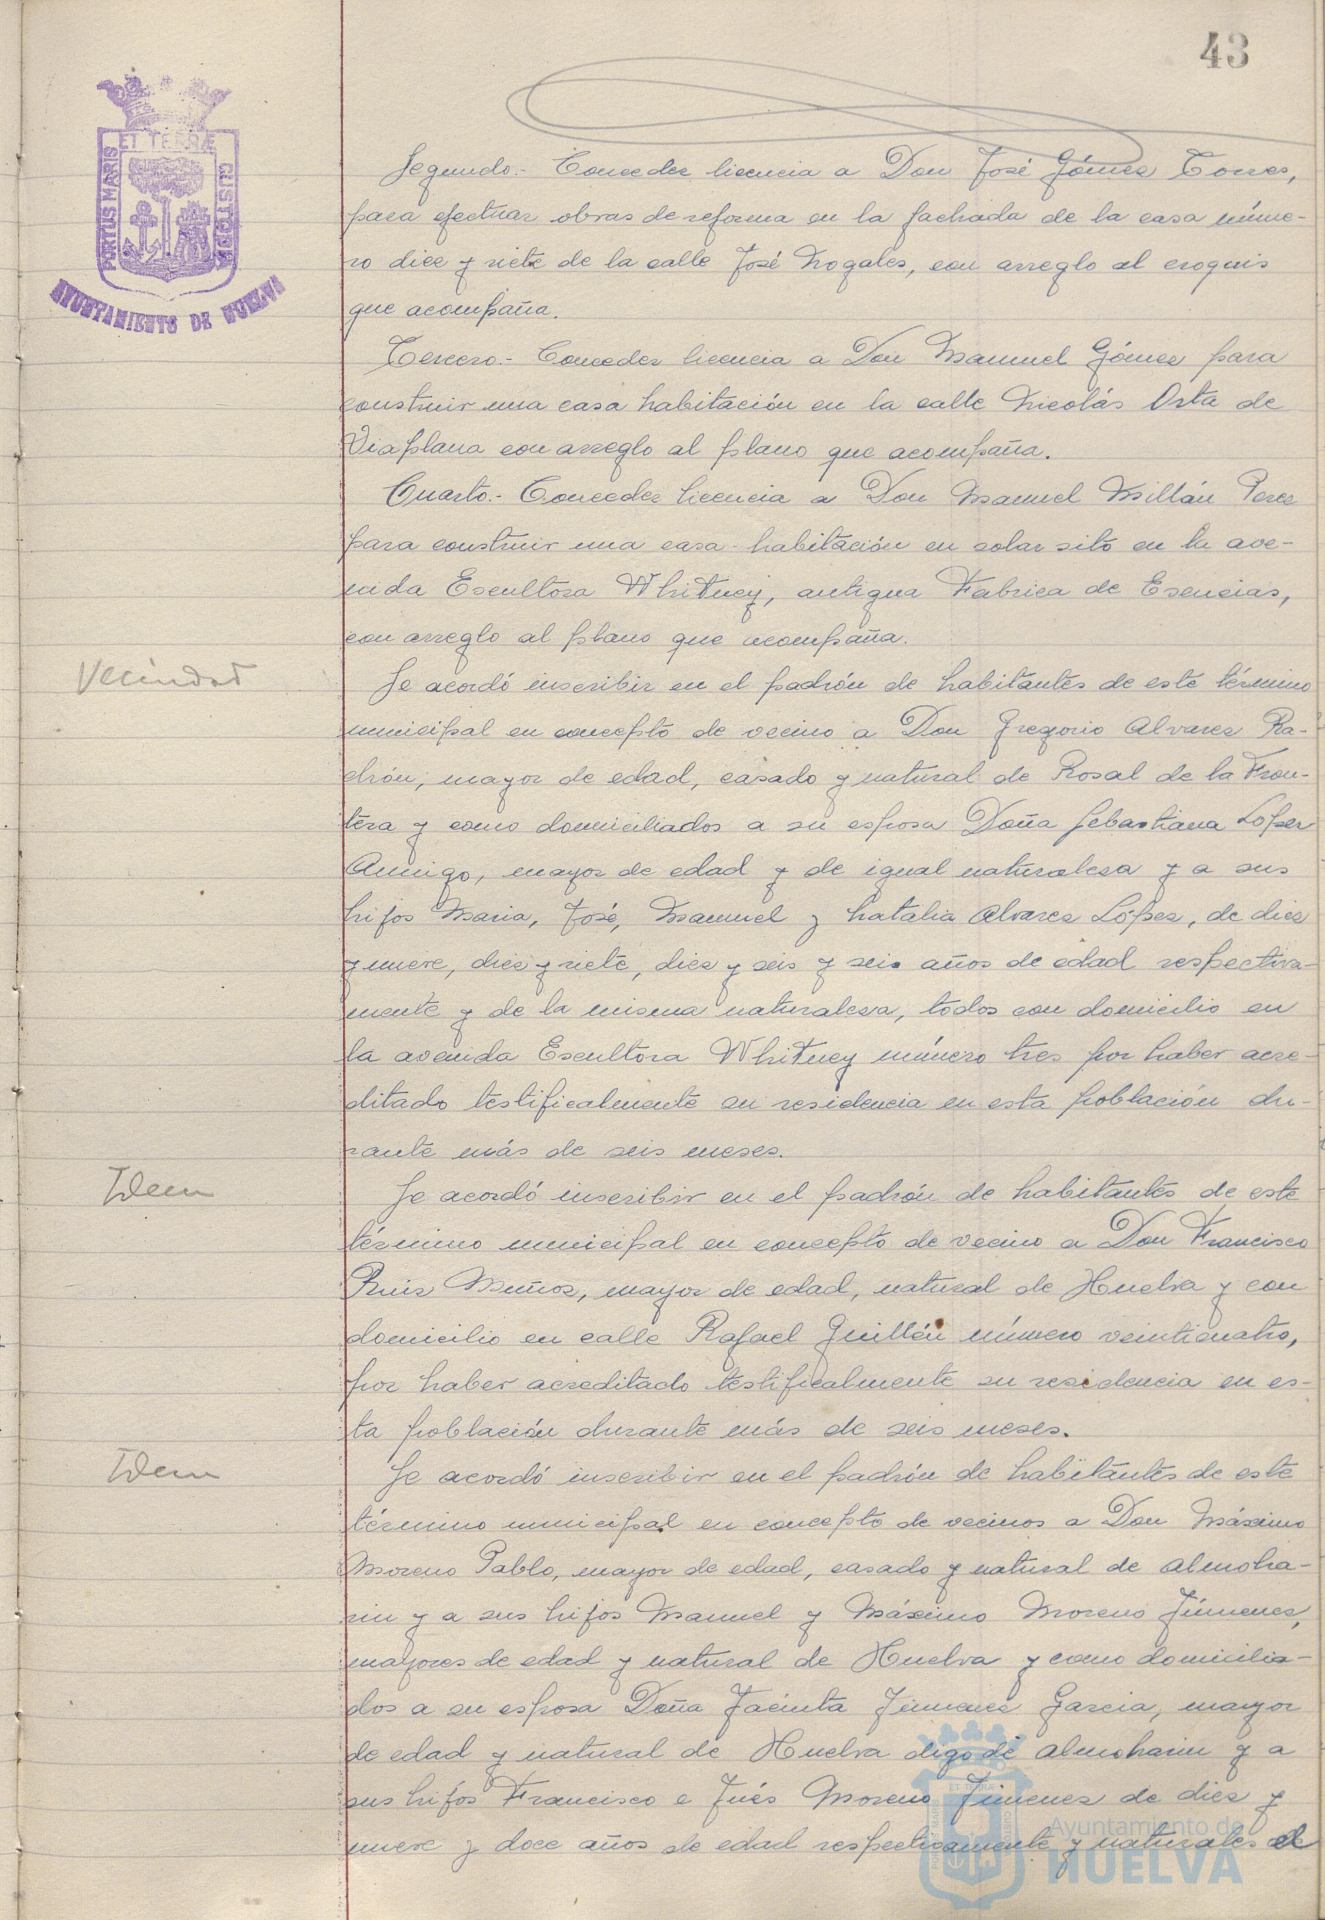 43
PORTUS MARIS
ET TERRÆ
CUSTODIA
AYUNTAMIENTO DE HUELVA
Segundo.- Conceder licencia a Don José Gómez Torres,
para efectuar obras de reforma en la fachada de la casa núme-
ro diez y siete de la calle José Nogales, con arreglo al croquis
que acompaña.
Tercero.- Conceder licencia a Don Manuel Gómez para
construir una casa habitación en la calle Nicolás Orta de
Viaplana con arreglo al plano que acompaña.
Cuarto.- Conceder licencia a Don Manuel Millán Perez
para construir una casa-habitación en solar sito en la ave-
nida Escultora Whitney, antigua Fabrica de Esencias,
con arreglo al plano que acompaña.
Vecindad
Se acordó inscribir en el padrón de habitantes de este término
municipal en concepto de vecino a Don Gregorio Alvarez Ra-
drón, mayor de edad, casado y natural de Rosal de la Fron-
tera y como domiciliados a su esposa Doña Sebastiana López
Amigo, mayor de edad y de igual naturaleza y a sus
hijos Maria, José, Manuel y Natalia Alvarez López, de diez
y nueve, diez y siete, diez y seis y seis años de edad respectiva-
mente y de la misma naturaleza, todos con domicilio en
la avenida Escultora Whitney número tres por haber acre-
ditado testificalmente su residencia en esta población du-
rante más de seis meses.
Idem
Se acordó inscribir en el padrón de habitantes de este
término municipal en concepto de vecino a Don Francisco
Ruiz Muñoz, mayor de edad, natural de Huelva y con
domicilio en calle Rafael Guillén número veinticuatro,
por haber acreditado testificalmente su residencia en es-
ta población durante más de seis meses.
Idem
Se acordó inscribir en el padrón de habitantes de este
término municipal en concepto de vecinos a Don Máximo
Moreno Pablo, mayor de edad, casado y natural de Almoha-
rin y a sus hijos Manuel y Máximo Moreno Jiménez,
mayores de edad y natural de Huelva y como domicilia-
dos a su esposa Doña Jacinta Jimenez Garcia, mayor
de edad y natural de Huelva digo de Almoharin y a
sus hijos Francisco e Inés Moreno Jimenez de diez y
nueve y doce años de edad respectivamente y naturales el
Ayuntamiento de
HUELVA